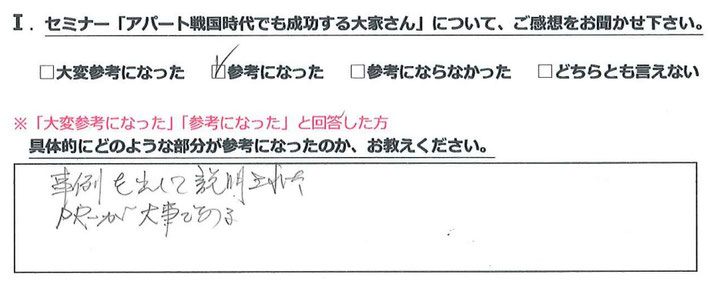 Ⅰ. セミナー「アパート戦国時代でも成功する大家さん」について、ご感想をお聞かせ下さい。
□大変参考になった ☑参考になった □参考にならなかった □どちらとも言えない
※「大変参考になった」「参考になった」と回答した方
具体的にどのような部分が参考になったのか、お教えください。
事例を出して説明された
PRーが大事である